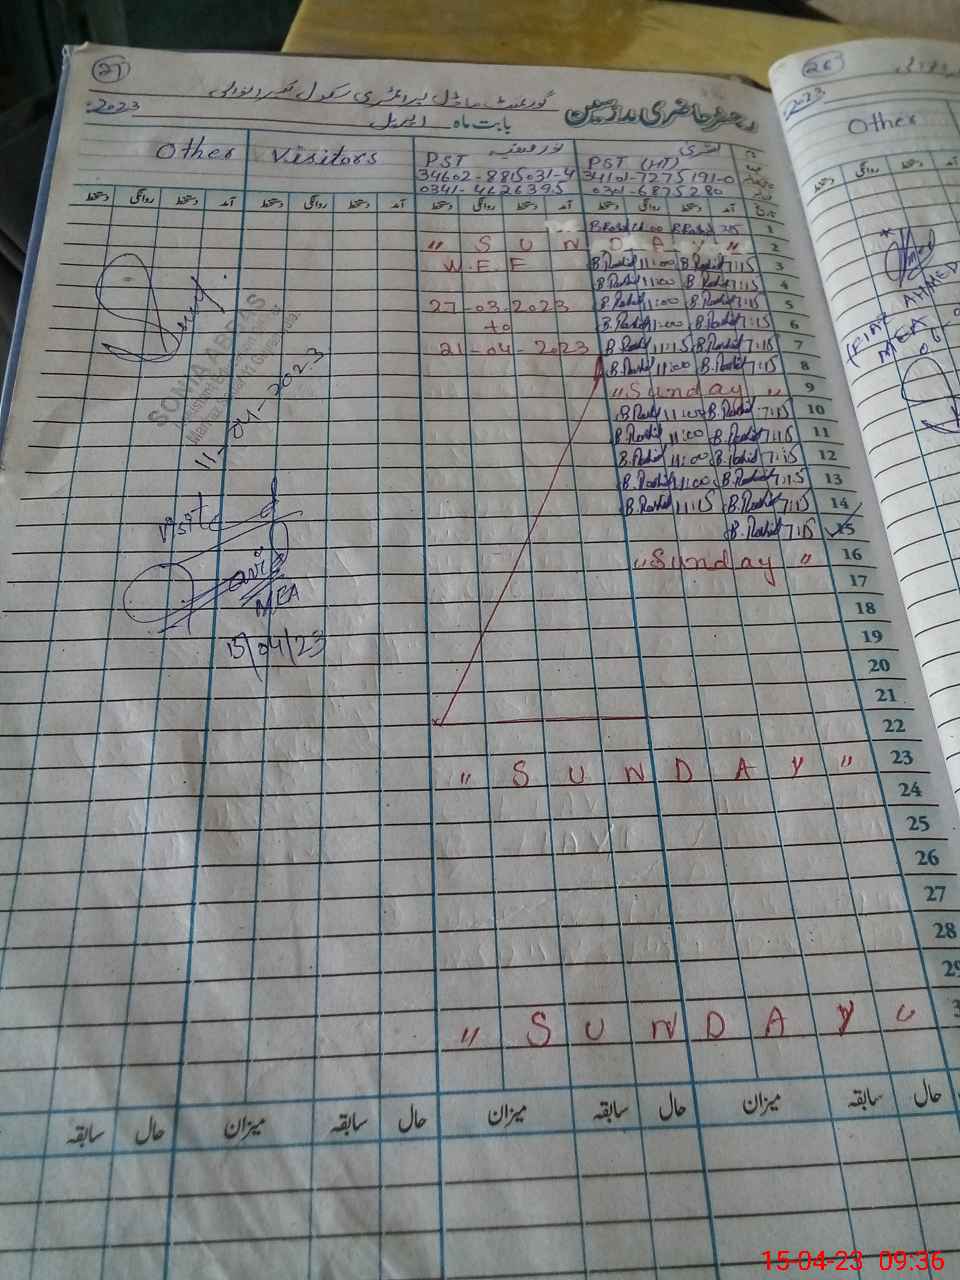 27
گورنمنٹ ماڈل پرائمری سکول
رجسٹر حاضری مدرسین
2023
بابت ماہ اپریل
Other Visitors
PST
PST (HT)
34602-885031-4 34101-7275191-0
0341-4626395 0301-6875280
دستخط روانگی دستخط آمد دستخط روانگی دستخط آمد دستخط روانگی دستخط آمد دستخط روانگی دستخط آمد
1
" S U N D A Y " 2
W.E.F B.Rashid 11:00 B.Rashid 7:15 3
B.Rashid 11:00 B.Rashid 7:15 4
27-03-2023 B.Rashid 11:00 B.Rashid 7:15 5
to B.Rashid 11:00 B.Rashid 7:15 6
21-04-2023 B.Rashid 11:15 B.Rashid 7:15 7
B.Rashid 11:00 B.Rashid 7:15 8
"Sunday" 9
B.Rashid 11:00 B.Rashid 7:15 10
B.Rashid 11:00 B.Rashid 7:15 11
B.Rashid 11:00 B.Rashid 7:15 12
B.Rashid 11:00 B.Rashid 7:15 13
B.Rashid 11:15 B.Rashid 7:15 14
B.Rashid 7:15 15
"Sunday" 16
17
18
19
20
21
22
" S U N D A Y " 23
24
25
26
27
28
29
" S U N D A Y "
SONIA ABBAS
11-04-2023
MEA
15/04/23
سابقہ حال میزان سابقہ حال میزان سابقہ حال میزان سابقہ حال
26
2023
Other
روانگی دستخط آمد
AHMED
MEA
15-04-23 09:36